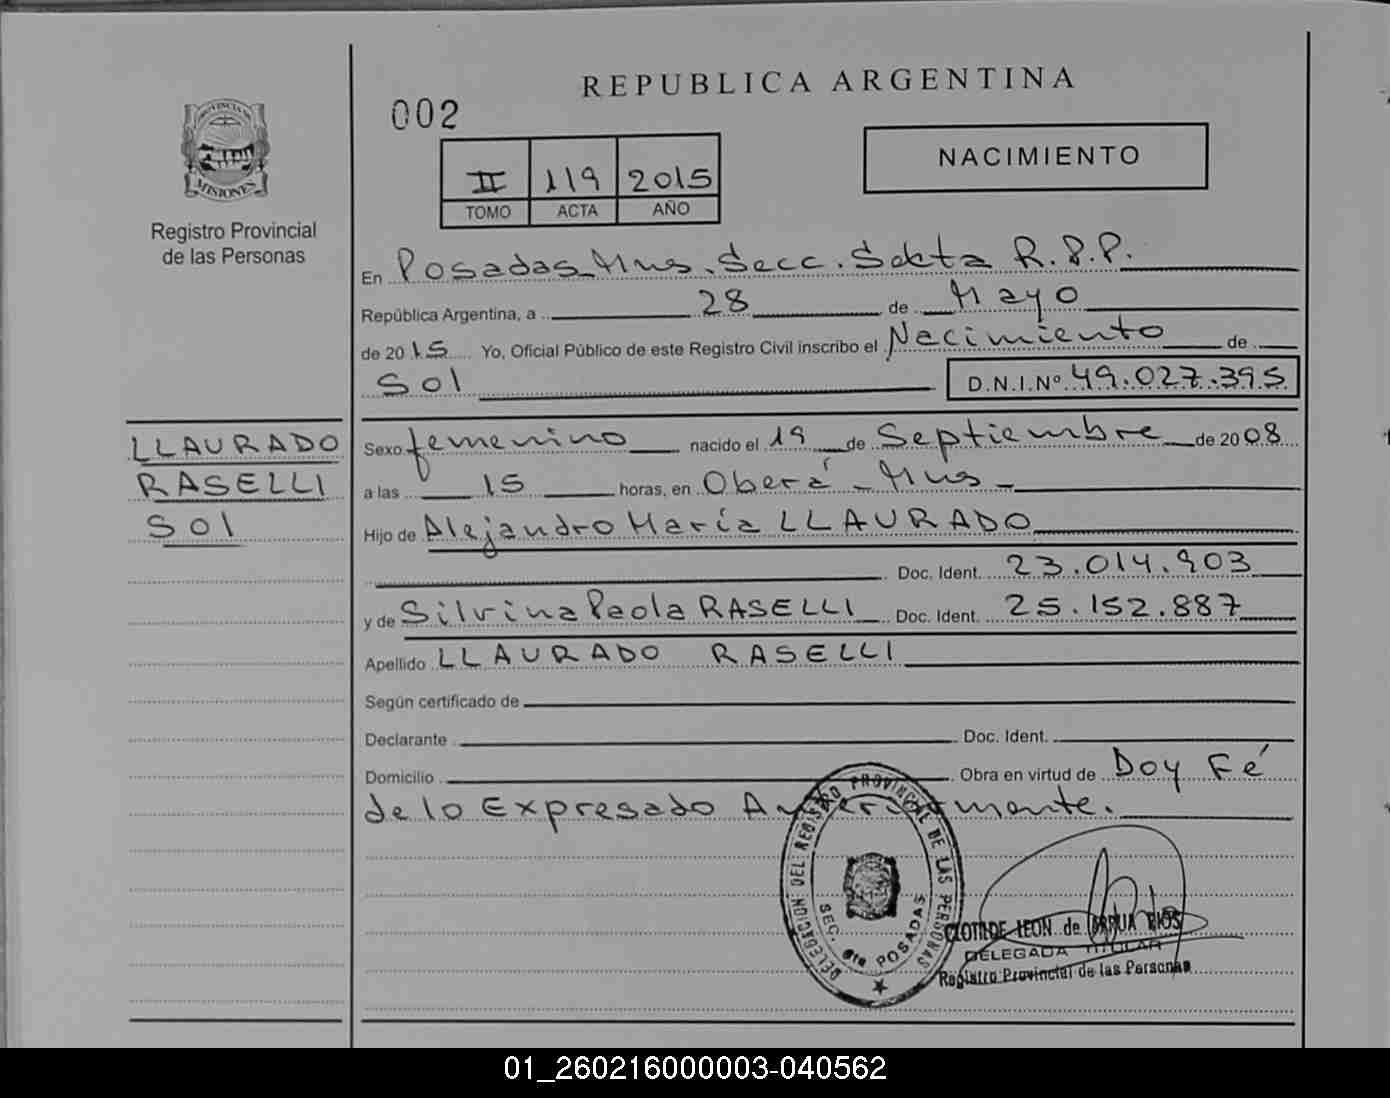 REPUBLICA ARGENTINA
002
NACIMIENTO
II 119 2015
TOMO ACTA AÑO
PROVINCIA DE MISIONES
Registro Provincial
de las Personas
En Posadas Mns. Secc. Sexta R.P.P.
República Argentina, a 28 de Mayo
de 2015 Yo, Oficial Público de este Registro Civil inscribo el Nacimiento de
Sol D.N.I.Nº 49.027.395
LLAURADO
RASELLI
Sol
Sexo femenino nacido el 19 de Septiembre de 2008
a las 15 horas, en Oberá - Mns -
Hijo de Alejandro María LLAURADO
Doc. Ident. 23.014.903
y de Silvina Paola RASELLI Doc. Ident. 25.152.887
Apellido LLAURADO RASELLI
Según certificado de
Declarante Doc. Ident.
Domicilio Obra en virtud de Doy Fé
de lo Expresado Anteriormente.
DELEGACION DEL REGISTRO PROVINCIAL DE LAS PERSONAS
SEC. 6ta POSADAS
CLOTILDE LEON de ARRUA RIOS
DELEGADA TITULAR
Registro Provincial de las Personas
01_260216000003-040562